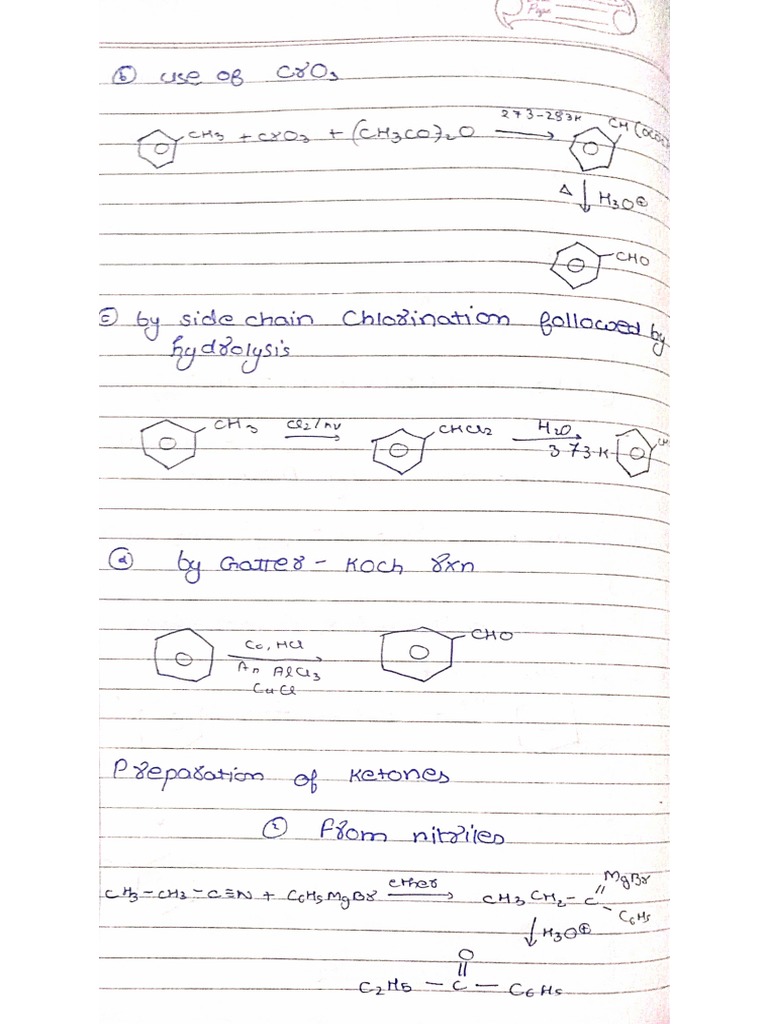 Page
(b) use of CrO3
CH3 + CrO3 + (CH3CO)2O 273-283K CH(OCOC
Δ H3O⊕
CHO
(c) by side chain Chlorination followed by
hydrolysis
CH3 Cl2/hv CHCl2 H2O 373-K
(d) by Gatter - Koch rxn
CO, HCl CHO
An AlCl3
CuCl
Preparation of Ketones
(2) From nitriles
CH3-CH2-C≡N + C6H5MgBr ether CH3CH2-C MgBr
C6H5
H3O⊕
O
C2H5 - C - C6H5